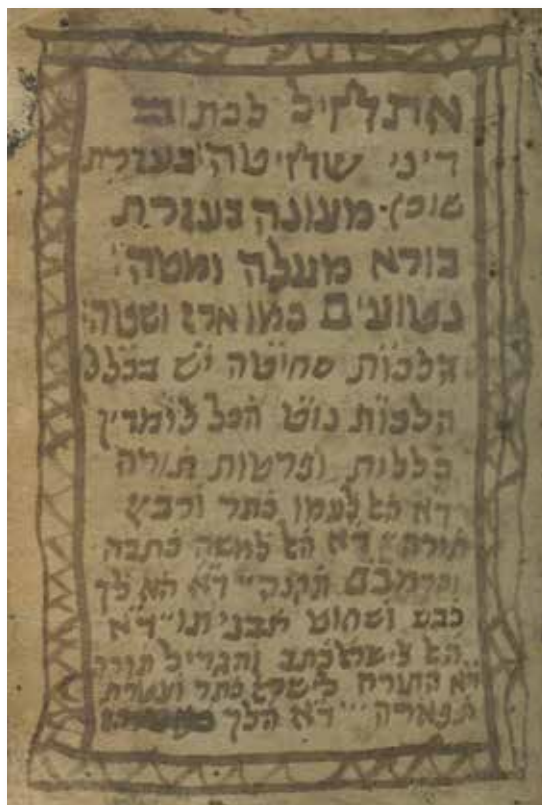 אתלחיל לכתוב
דיני שחיטה בעזרת
שוכן מעונה בעזרת
בורא מעלה ומטה
נטועים כמו ארז ושטה
הלכות שחיטה יש בכלל
הלכות נוט הכל לומדין
כללות ופרטות תורה
ד״א הא לעמו כתר ורבץ
תורה ד״א הא למשה כתבה
תקנה ד״א הא לך
כבש ושחוט תבניתו ד״א
הא לישראל כתב והגדיל תורה
ד״א התורה לישראל כתר ועטרת
תפארה ד״א הלך